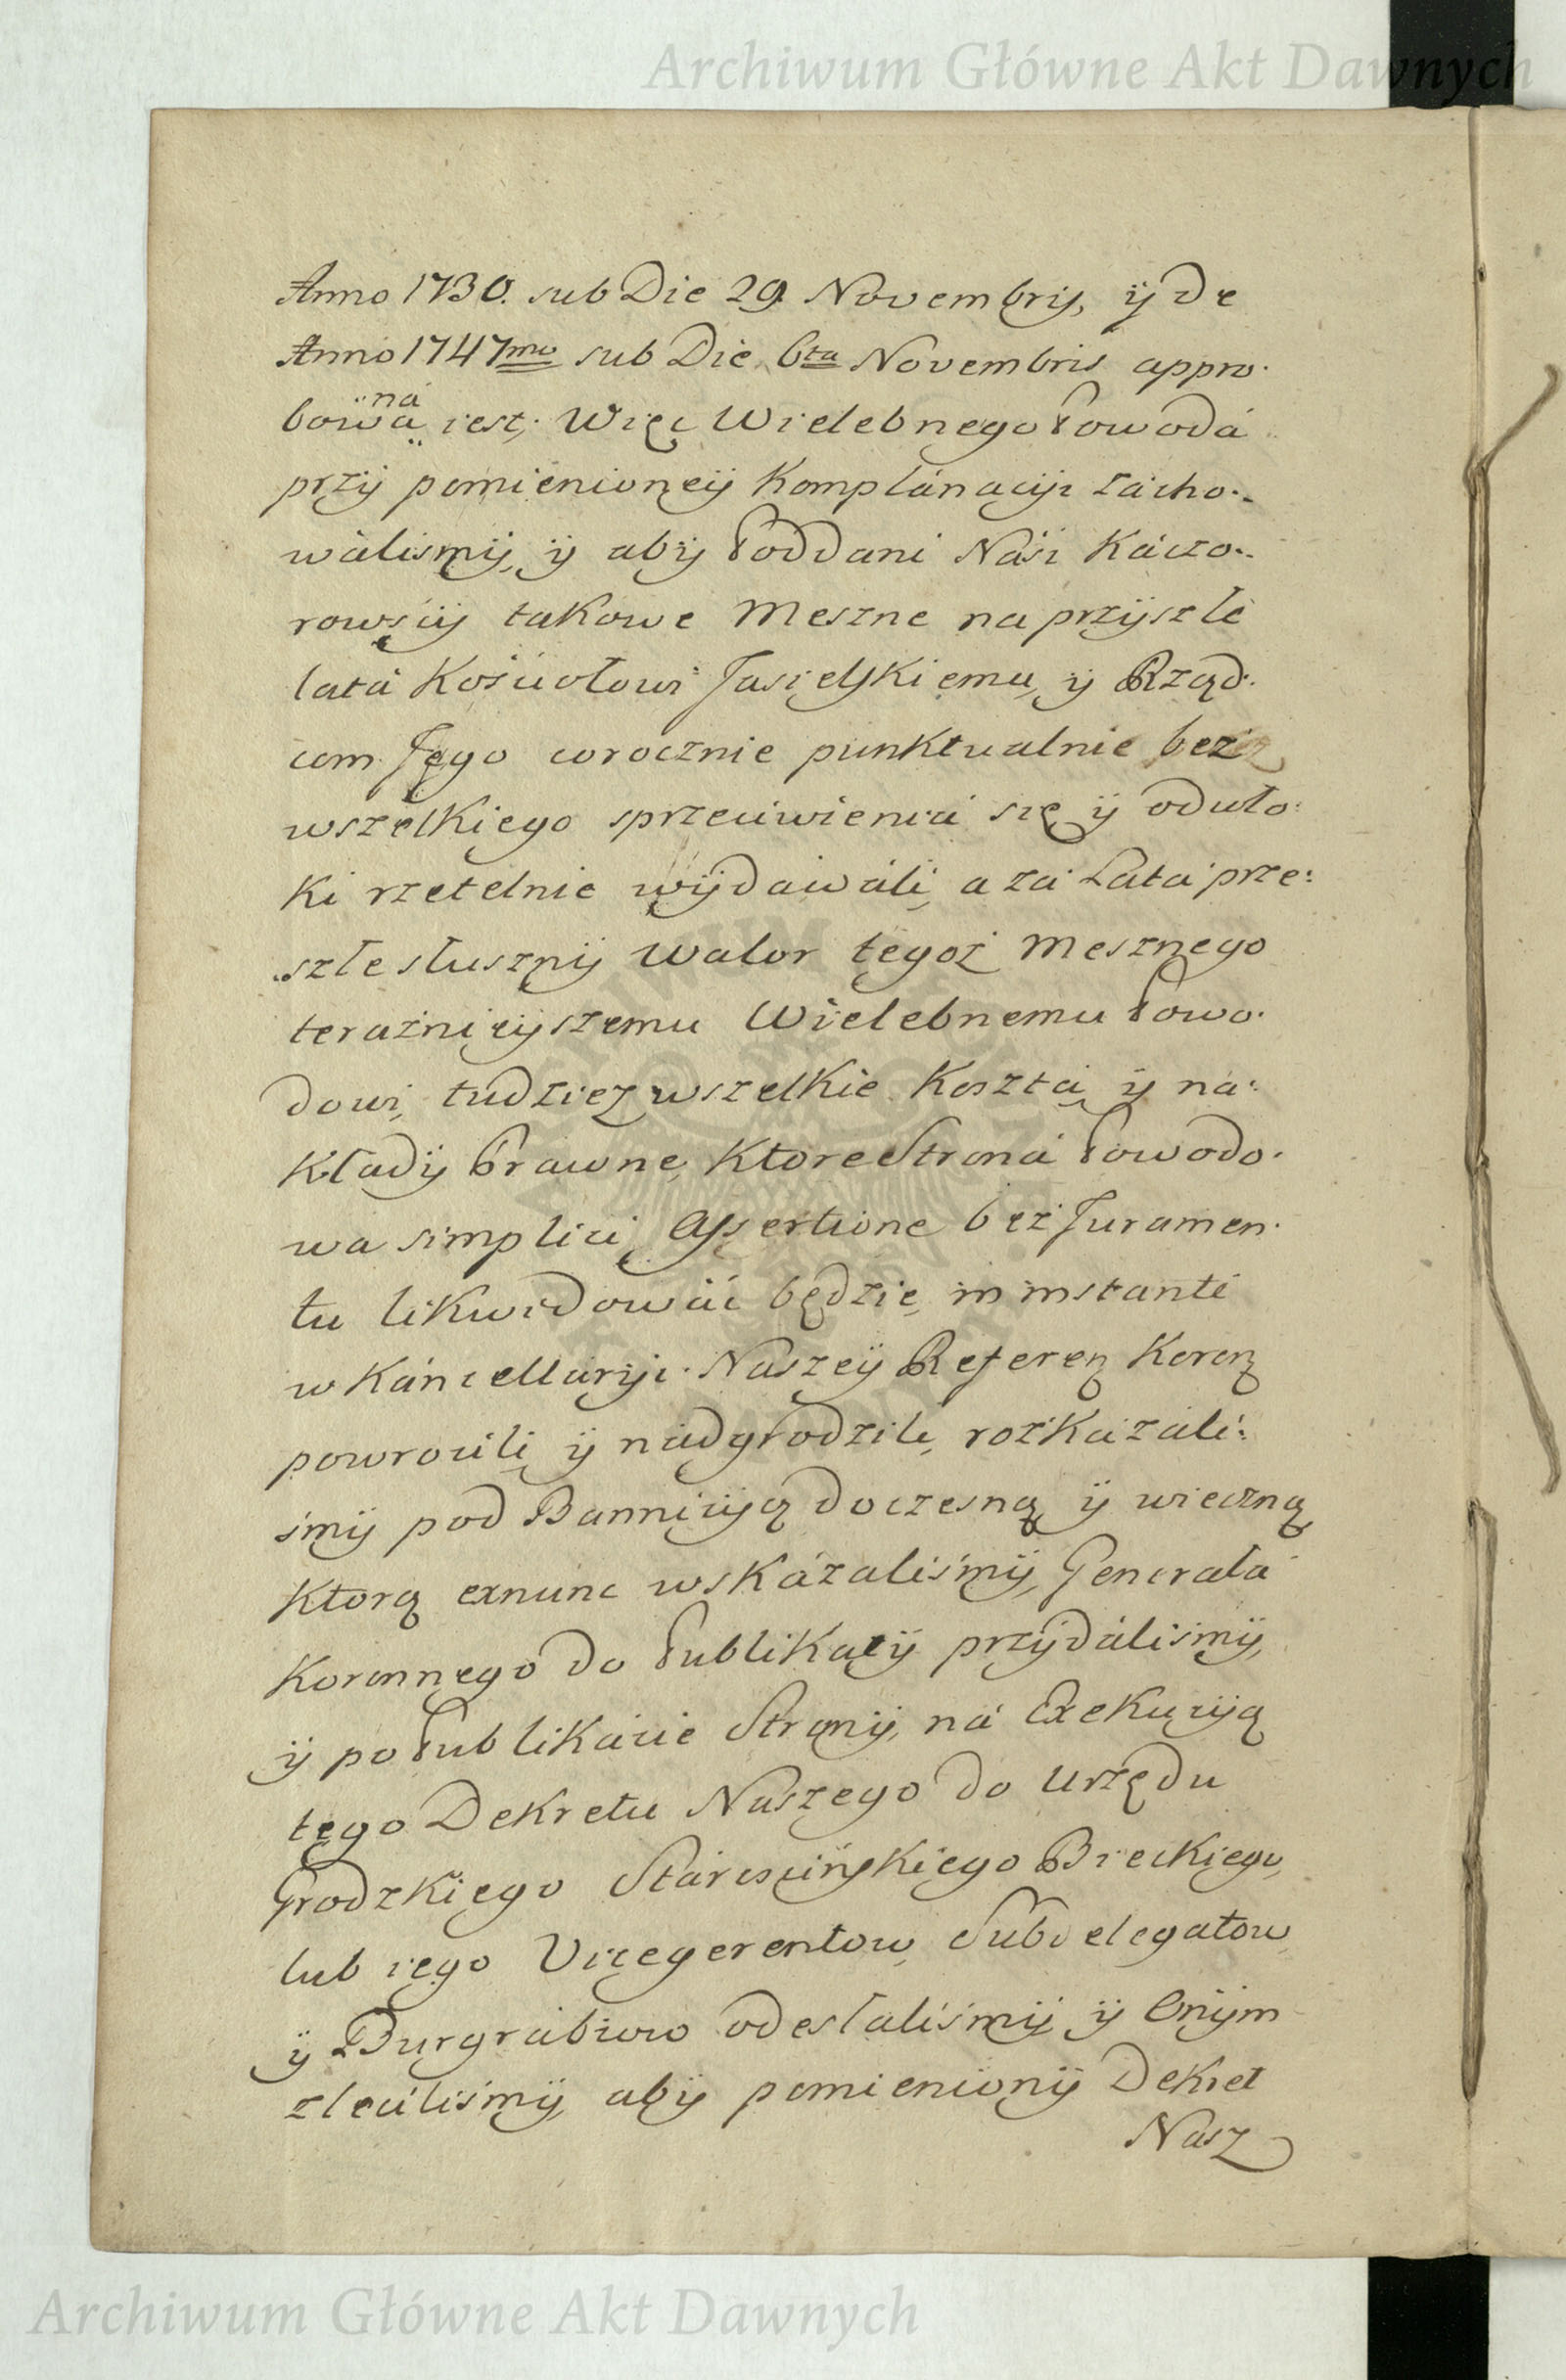 Archiwum Główne Akt Dawnych
Anno 1730. sub Die 29 Novembrys, ÿ de
Anno 1747mo sub Die 6ta Novembris appro:
bowána iest; Więc Wielebnego Powodá
przÿ pomienioneÿ Komplánacÿi zácho:
wáliśmÿ, ÿ abÿ Poddani Náśi Káczo:
rowścÿ takowe Meszne na przÿszłe
latá Kośćiołowi Jasielskiemu, ÿ Rząd:
com Jego corocznie punktualnie bez
wszelkiego sprzeciwieniá się ÿ odwło:
ki rzetelnie wÿdawáli, a zá Latá prze:
szłe słusznÿ walor tegoż Mesznego
teraźnieÿszemu Wielebnemu Powo:
dowi, tudziez wszelkie Kosztá ÿ na:
kładÿ Prawne, ktore Stroná Powodo:
wa simplici Assertione bez Juramen:
tu likwidowáć będzie, in instanti
w Káncellarÿi Naszeÿ Referen Koron
powrocili ÿ nádgrodzili, rozkázali:
śmÿ pod Bannicÿą doczesną ÿ wieczną
ktorą exnunc wskázaliśmÿ, Generałá
Koronnego do Publikatÿ przÿdáliśmÿ,
ÿ po Publikácie Stronÿ, ná Exekucÿą
tego Dekretu Naszego do Urzędu
Grodzkiego Stárościńskiego Bieckiego,
lub iego Vicegerentow, Subdelegatow
ÿ Burgrábiow odesłaliśmÿ ÿ Onÿm
zleciliśmÿ, abÿ pomienionÿ Dekret
Nasz
Archiwum Główne Akt Dawnych